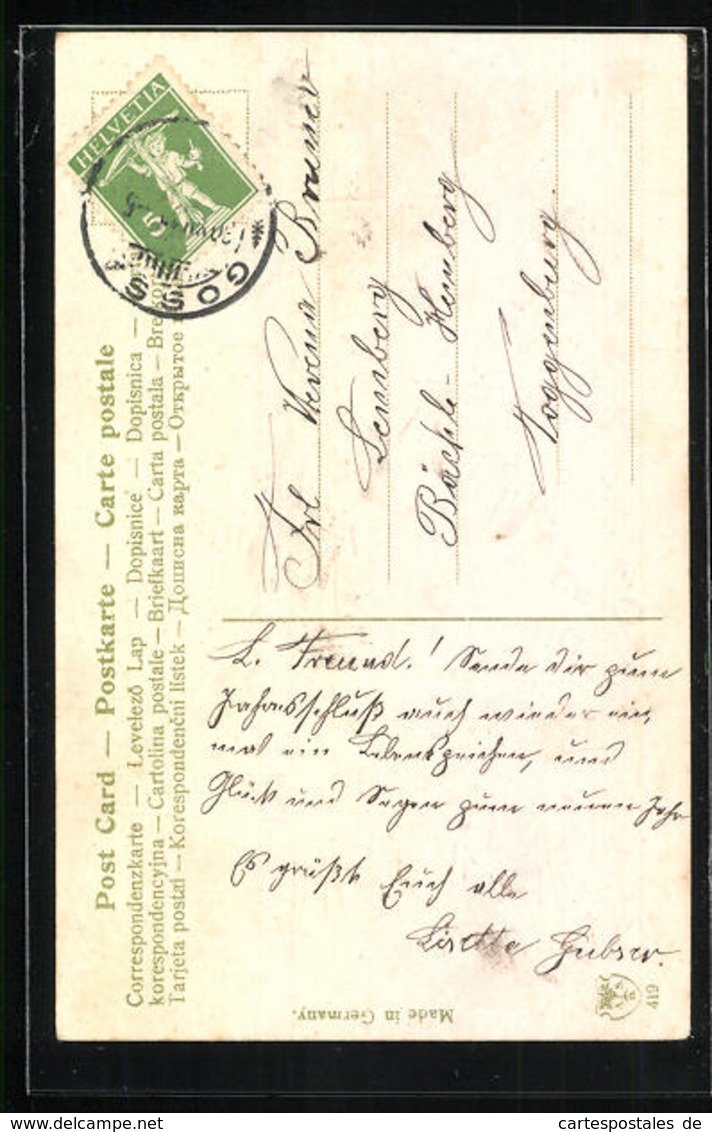 Post Card — Postkarte — Carte postale
Correspondenzkarte — Levelező Lap — Dopisnice — Dopisnica —
korespondencyjna — Cartolina postale — Briefkaart — Carta postala — Bre
Tarjeta postal — Korespondenční lístek — Дописна карта — Открытое
HELVETIA
5
GOSS
Frl Verena Bruner
Bächli - Hemberg
Toggenburg.
L. Freund.! Sende dir zum
Jahresschluß auch wieder ein,
mal ein Lebenszeichen, und
Glück und Segen zum neuen Jahr
Es grüßt Euch alle
Lisette Hubser.
Made in Germany.
419
cartespostales.de